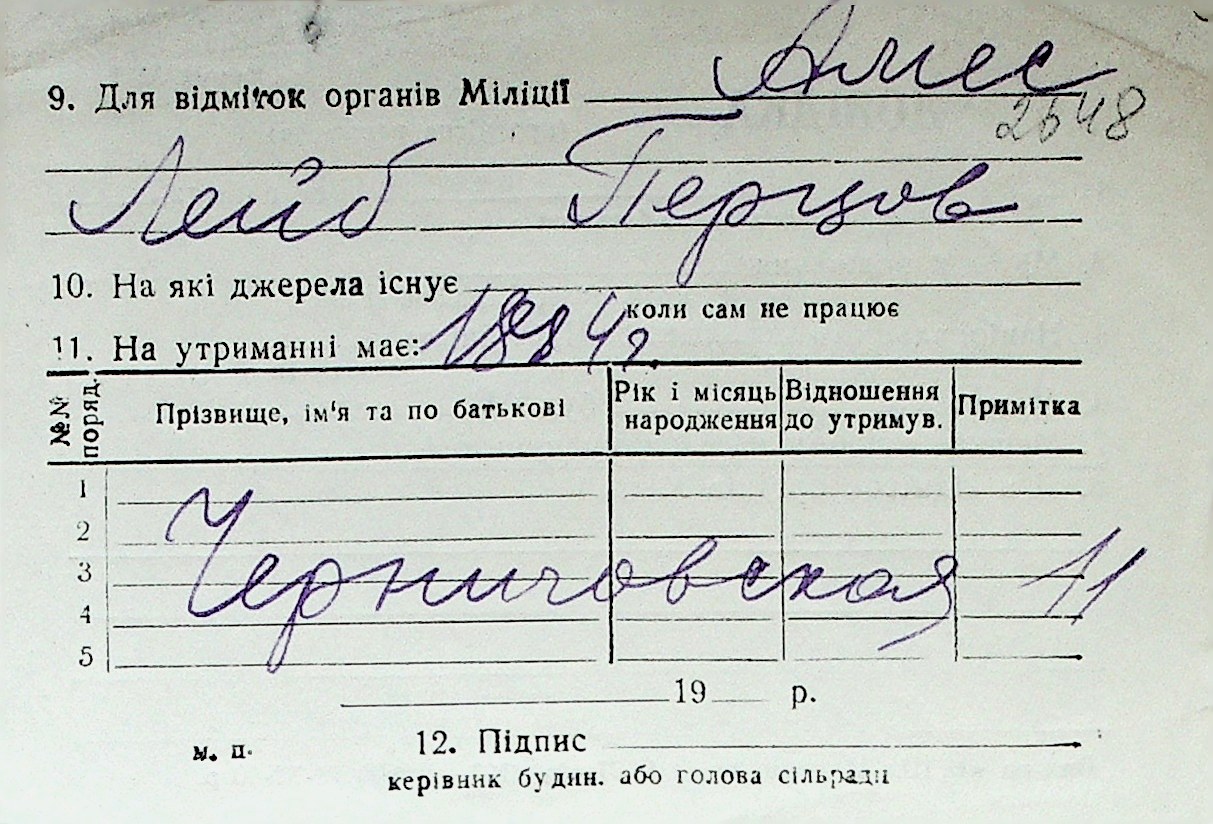 9. Для відміток органів Міліції Амес
2648
Лейб Перцов
10. На які джерела існує
коли сам не працює
11. На утриманні має: 1884 г.
№№ поряд.
Прізвище, ім'я та по батькові
Рік і місяць народження
Відношення до утримув.
Примітка
1
2
3
4
5
Черничовская 11
19 р.
м. п. 12. Підпис
керівник будин. або голова сільради